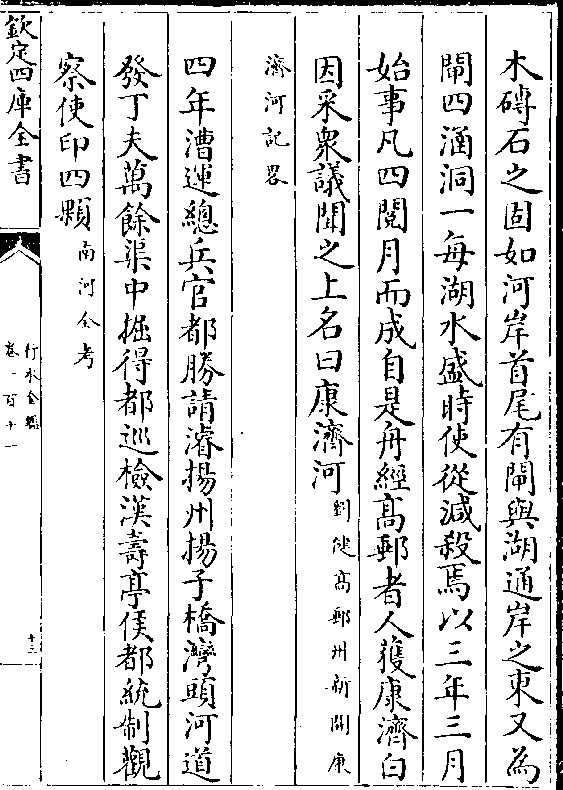 木磚石之固如河岸首尾有閘與湖通岸之東又為
閘四涵洞一每湖水盛時使從減殺焉以三年三月
始事凡四閱月而成自是舟經高郵者人獲康濟白
因采衆議聞之上名曰康濟河劉健高郵州新開康
濟河記畧
四年漕運總兵官都勝請濬揚州揚子橋灣頭河道
發丁夫萬餘渠中掘得都巡檢漢壽亭侯都統制觀
察使印四顆南河全考
欽定四庫全書
行水金鑑
卷一百十一
十三